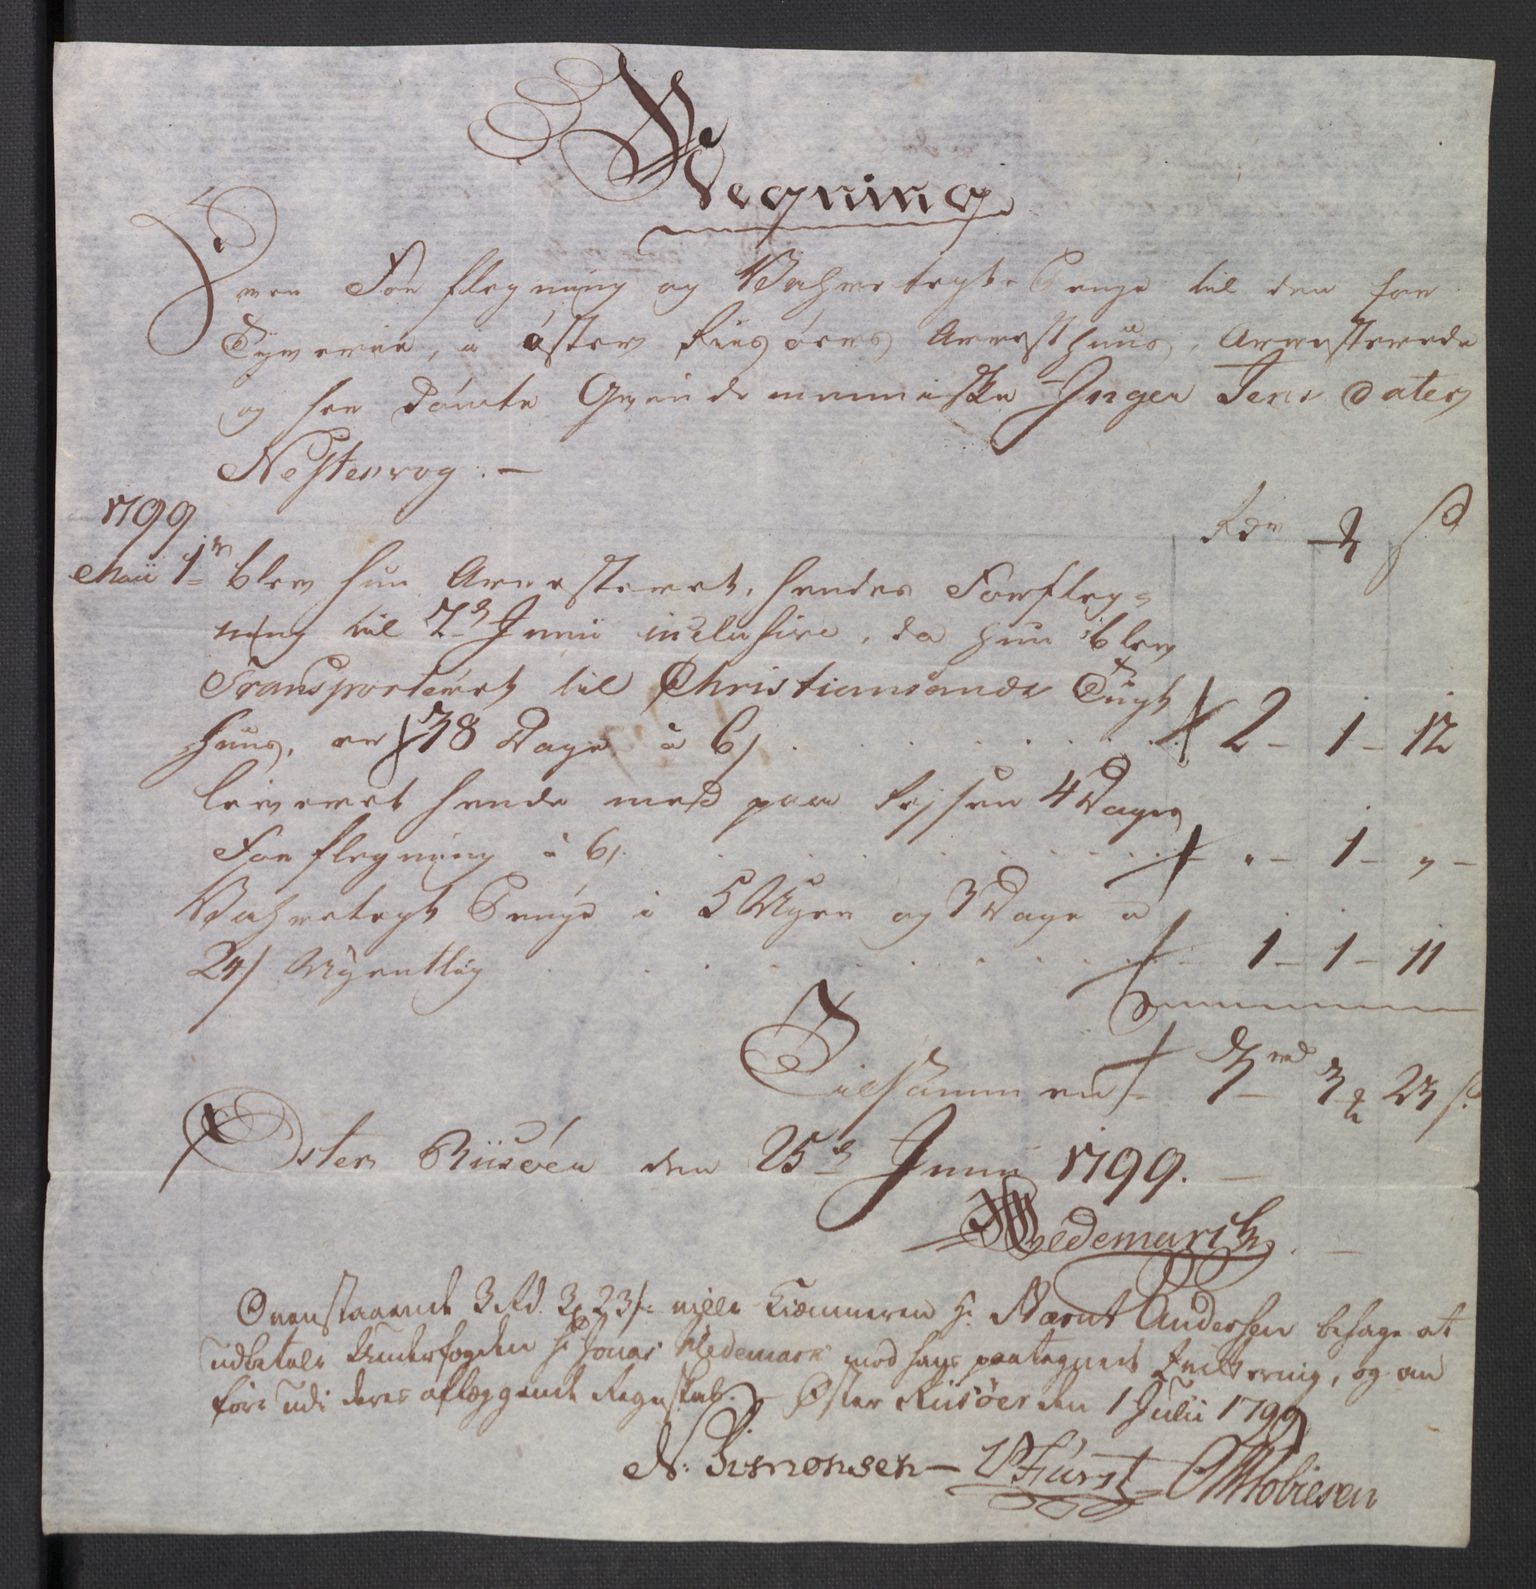 Regning
Over Forflegning og Vahretegts Penge til den for
Tyverie, i Øster Riisøers Arresthuus, Arresterede
og her Dömte Qvindemenniske Inger Jens Dater
Nestervog. —
1799 Rdr ß
Maii 1te blev hun Arresteret, hendes Forfleg-
ning til 7de Junii inclusive, da hun blev
Transporteret til Christiansands Tugt
huus, er 38 Dage a 6ß . . . . . 2 – 1 – 12
leveret hende med paa Rejsen 4 Dages
Forflegning a 6ß . . . . . „ – 1 – „ –
Vahretegt Penge i 5 Uger og 3 Dage a
24ß Ugentlig . . . . . 1 – 1 – 11
Tilsammen 3rd 3 23ß
Øster Riisöer den 25de Junii 1799. —
Hedemarck
Ovenstaaende 3 Rd. 3 23ß ville Kiemneren Hr. Bernt Andersen behage at
udbetale Underfogden Hr Jonas Hedemark mod hans paategnede Qvitering, og an
före udi deres aflæggende Regnskab. – Øster Riisöer den 1 Julii 1799
N: Simonsen – Fürst Tobiesen